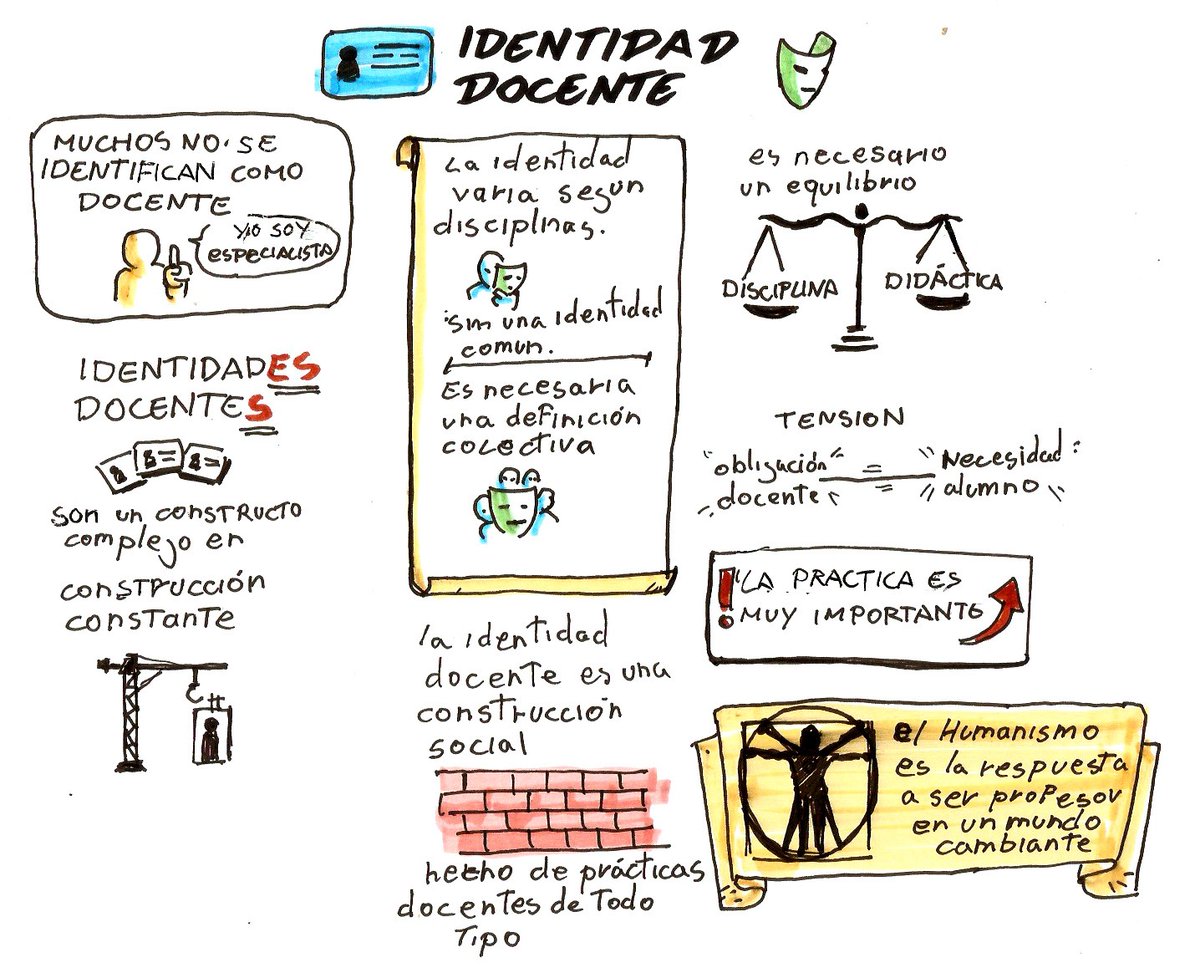 IDENTIDAD
DOCENTE
MUCHOS NO SE
IDENTIFICAN COMO
DOCENTE
YO SOY
ESPECIALISTA
IDENTIDADES
DOCENTES
SON UN CONSTRUCTO
complejo en
construcción
constante
La identidad
varia según
disciplinas.
Sin una identidad
comun.
Es necesaria
una definición
colectiva
la identidad
docente es una
construcción
social
hecho de prácticas
docentes de Todo
Tipo
es necesario
un equilibrio
DISCIPLINA
DIDÁCTICA
TENSION
"obligación
docente"
=
"Necesidad
alumno"
! LA PRACTICA ES
MUY IMPORTANTE
el Humanismo
es la respuesta
a ser profesor
en un mundo
cambiante